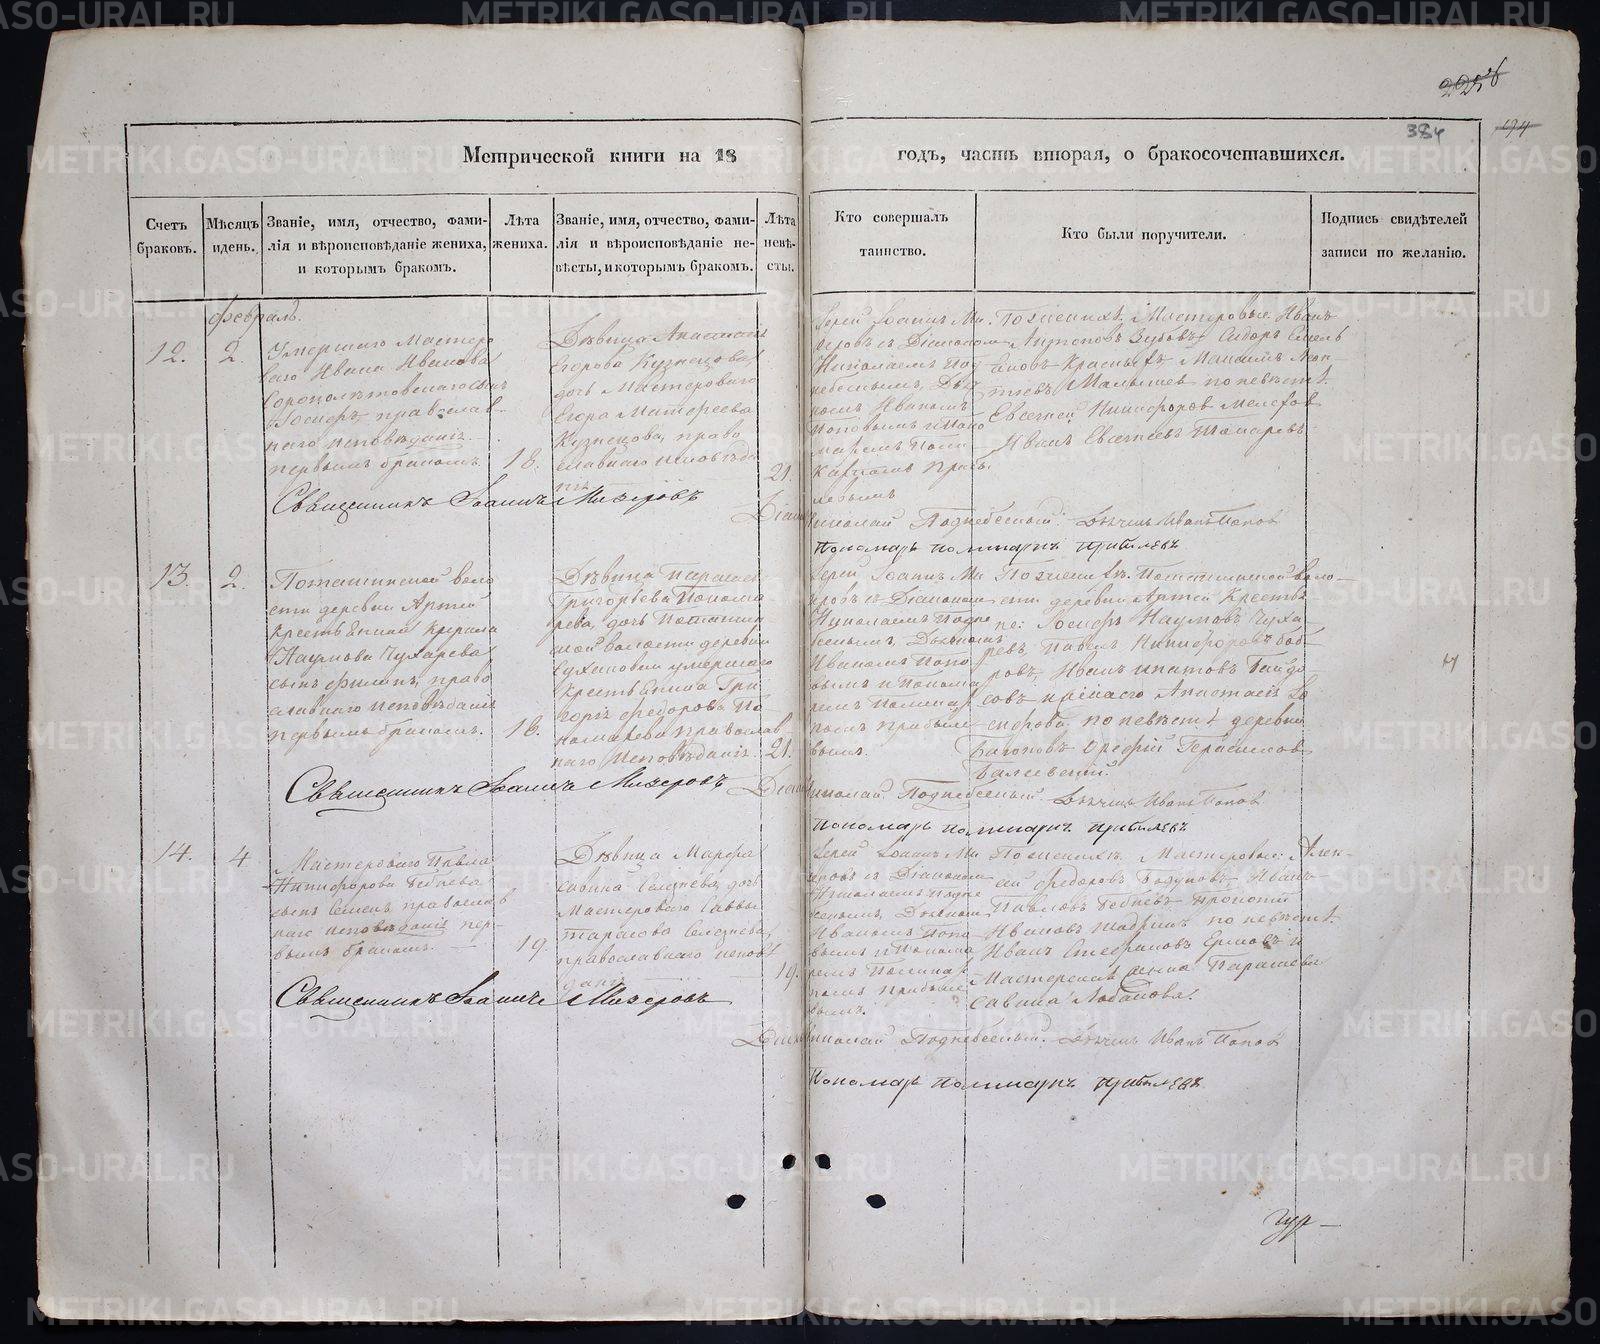 2256
384
194
Метрической книги на 18 годъ, часть вторая, о бракосочетавшихся.
Счетъ браковъ.
Мѣсяцъ и день.
Званіе, имя, отчество, фамилія и вѣроисповѣданіе жениха, и которымъ бракомъ.
Лѣта жениха.
Званіе, имя, отчество, фамилія и вѣроисповѣданіе невѣсты, и которымъ бракомъ.
Лѣта невѣсты.
Кто совершалъ таинство.
Кто были поручители.
Подпись свидѣтелей записи по желанію.
февраль.
12.
2.
Умершаго Мастеро
ваго Ивана Иванова
сынъ
Іосифъ, православ
наго исповѣданія
первымъ бракомъ.
18.
Дѣвица Анастасія
Егорова Кузнецова,
дочь Мастероваго
Егора Матфеева
Кузнецова, право
славнаго исповѣда
нія
21.
Іерей Іоаннъ Ми
зеровъ съ Діакономъ
Николаемъ Под
небеснымъ, Дьяч
комъ Иваномъ
Поповымъ и Поно
маремъ Поли
карпомъ Прибы
левымъ
По женихѣ: Мастеровые Иванъ
Антоновъ Зубовъ, Сидоръ Семен
овъ Красныхъ, Максимъ Леон
тьевъ Малышев по невѣстѣ
Евсевий Никифоров
Иванъ Евсевиевъ Токаревъ
Священникъ Іоаннъ Мизеровъ
Діаконъ Николай Поднебесный. Дьячекъ Иванъ Попов
Пономарь поликарпъ прибылевъ
13.
2.
Поташинской воло
сти деревни Артей
Крестьянина Кирила
Наумова Чухарева
сынъ Филипъ, право
славнаго исповѣданія
первымъ бракомъ.
18.
Дѣвица Параскева
Григорьева Понома
рева, дочь Поташин
ской волости деревни
Сухановки умершаго
Крестьянина Гри
горія Федорова По
номарева православ
наго исповѣданія
21.
Іерей Іоаннъ Ми
зеровъ съ Діакономъ
Николаемъ Подне
беснымъ, Дьячкомъ
Иваномъ Попо
вымъ и Понома
ремъ Поликар
помъ Прибыле
вымъ.
По женихѣ: Поташинской воло
сти деревни Артей Крестья
не: Іосифъ Наумовъ Чуха
ревъ, Павелъ Никифоровъ Боб
ровъ, Иванъ
по невѣстѣ деревни
Герасимов
Священникъ Іоаннъ Мизеровъ
Діаконъ Николай Поднебесный. Дьячекъ Иванъ Попов
Пономарь поликарпъ прибылевъ
14.
4
Мастероваго Павла
Никифорова Бебнева
сынъ Семенъ, православ
наго исповѣданія пер
вымъ бракомъ.
19.
Дѣвица Марфа
Савина Селезнева, дочь
Мастероваго Саввы
Тарасова Селезнева,
православнаго исповѣ
данія
19.
Іерей Іоаннъ Ми
зеровъ съ Діакономъ
Николаемъ Подне
беснымъ, Дьячкомъ
Иваномъ Попо
вымъ и Понома
ремъ Поликар
помъ Прибыле
вымъ.
По женихѣ: Мастеровые: Алек
сѣй Федоровъ Бозуновъ, Иванъ
Павловъ Бебневъ, Прокопий
Ивановъ Шадринъ по невѣстѣ
Иванъ Стефановъ Ермаковъ и
Мастерская жена Парасковья
Савина Лобанова.
Священникъ Іоаннъ Мизеровъ
Діаконъ Николай Поднебесный. Дьячекъ Иванъ Попов
Пономарь поликарпъ прибылевъ
METRIKI.GASO-URAL.RU